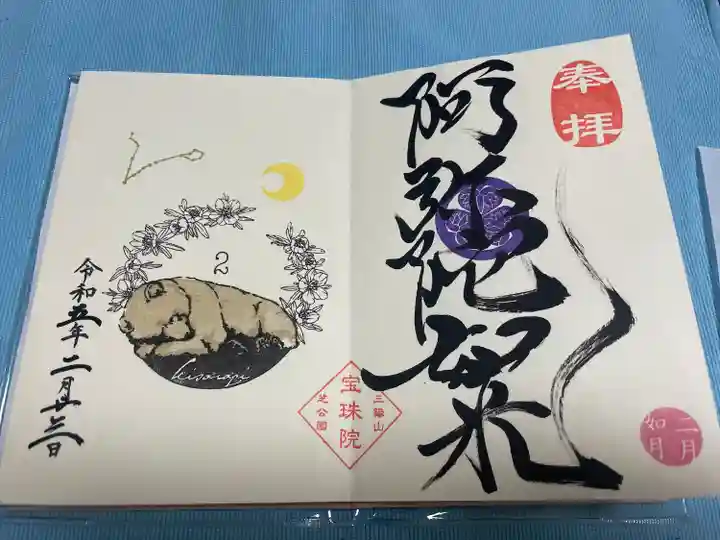 奉拝
阿弥陀如来
二月
如月
三縁山
宝珠院
芝公園
2
Kisaragi
令和五年二月廿三日